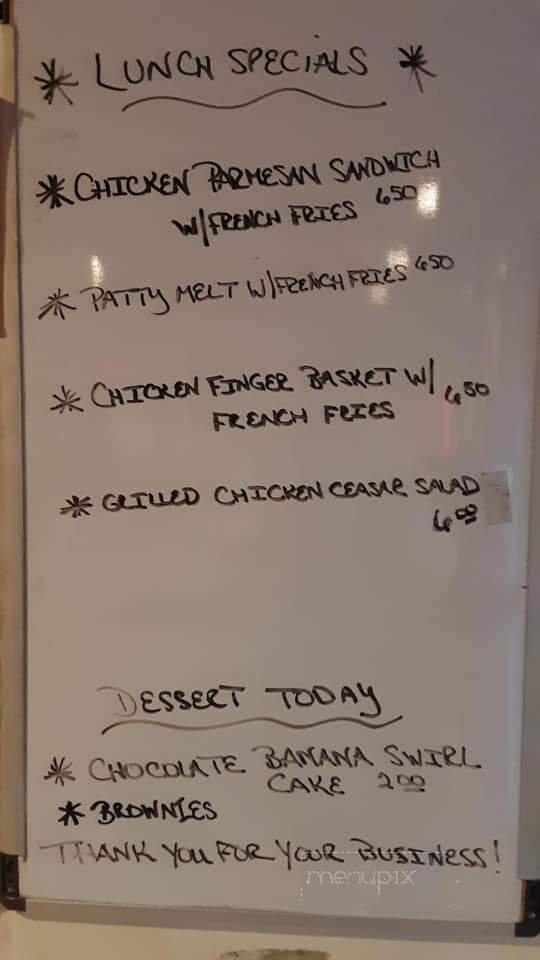 * LUNCH SPECIALS *
* CHICKEN PARMESAN SANDWICH
W/FRENCH FRIES 650
* PATTY MELT W/FRENCH FRIES 650
* CHICKEN FINGER BASKET W/ 650
FRENCH FRIES
* GRILLED CHICKEN CEASAR SALAD
600
DESSERT TODAY
* CHOCOLATE BANANA SWIRL
CAKE 200
* BROWNIES
THANK YOU FOR YOUR BUSINESS!
menupix